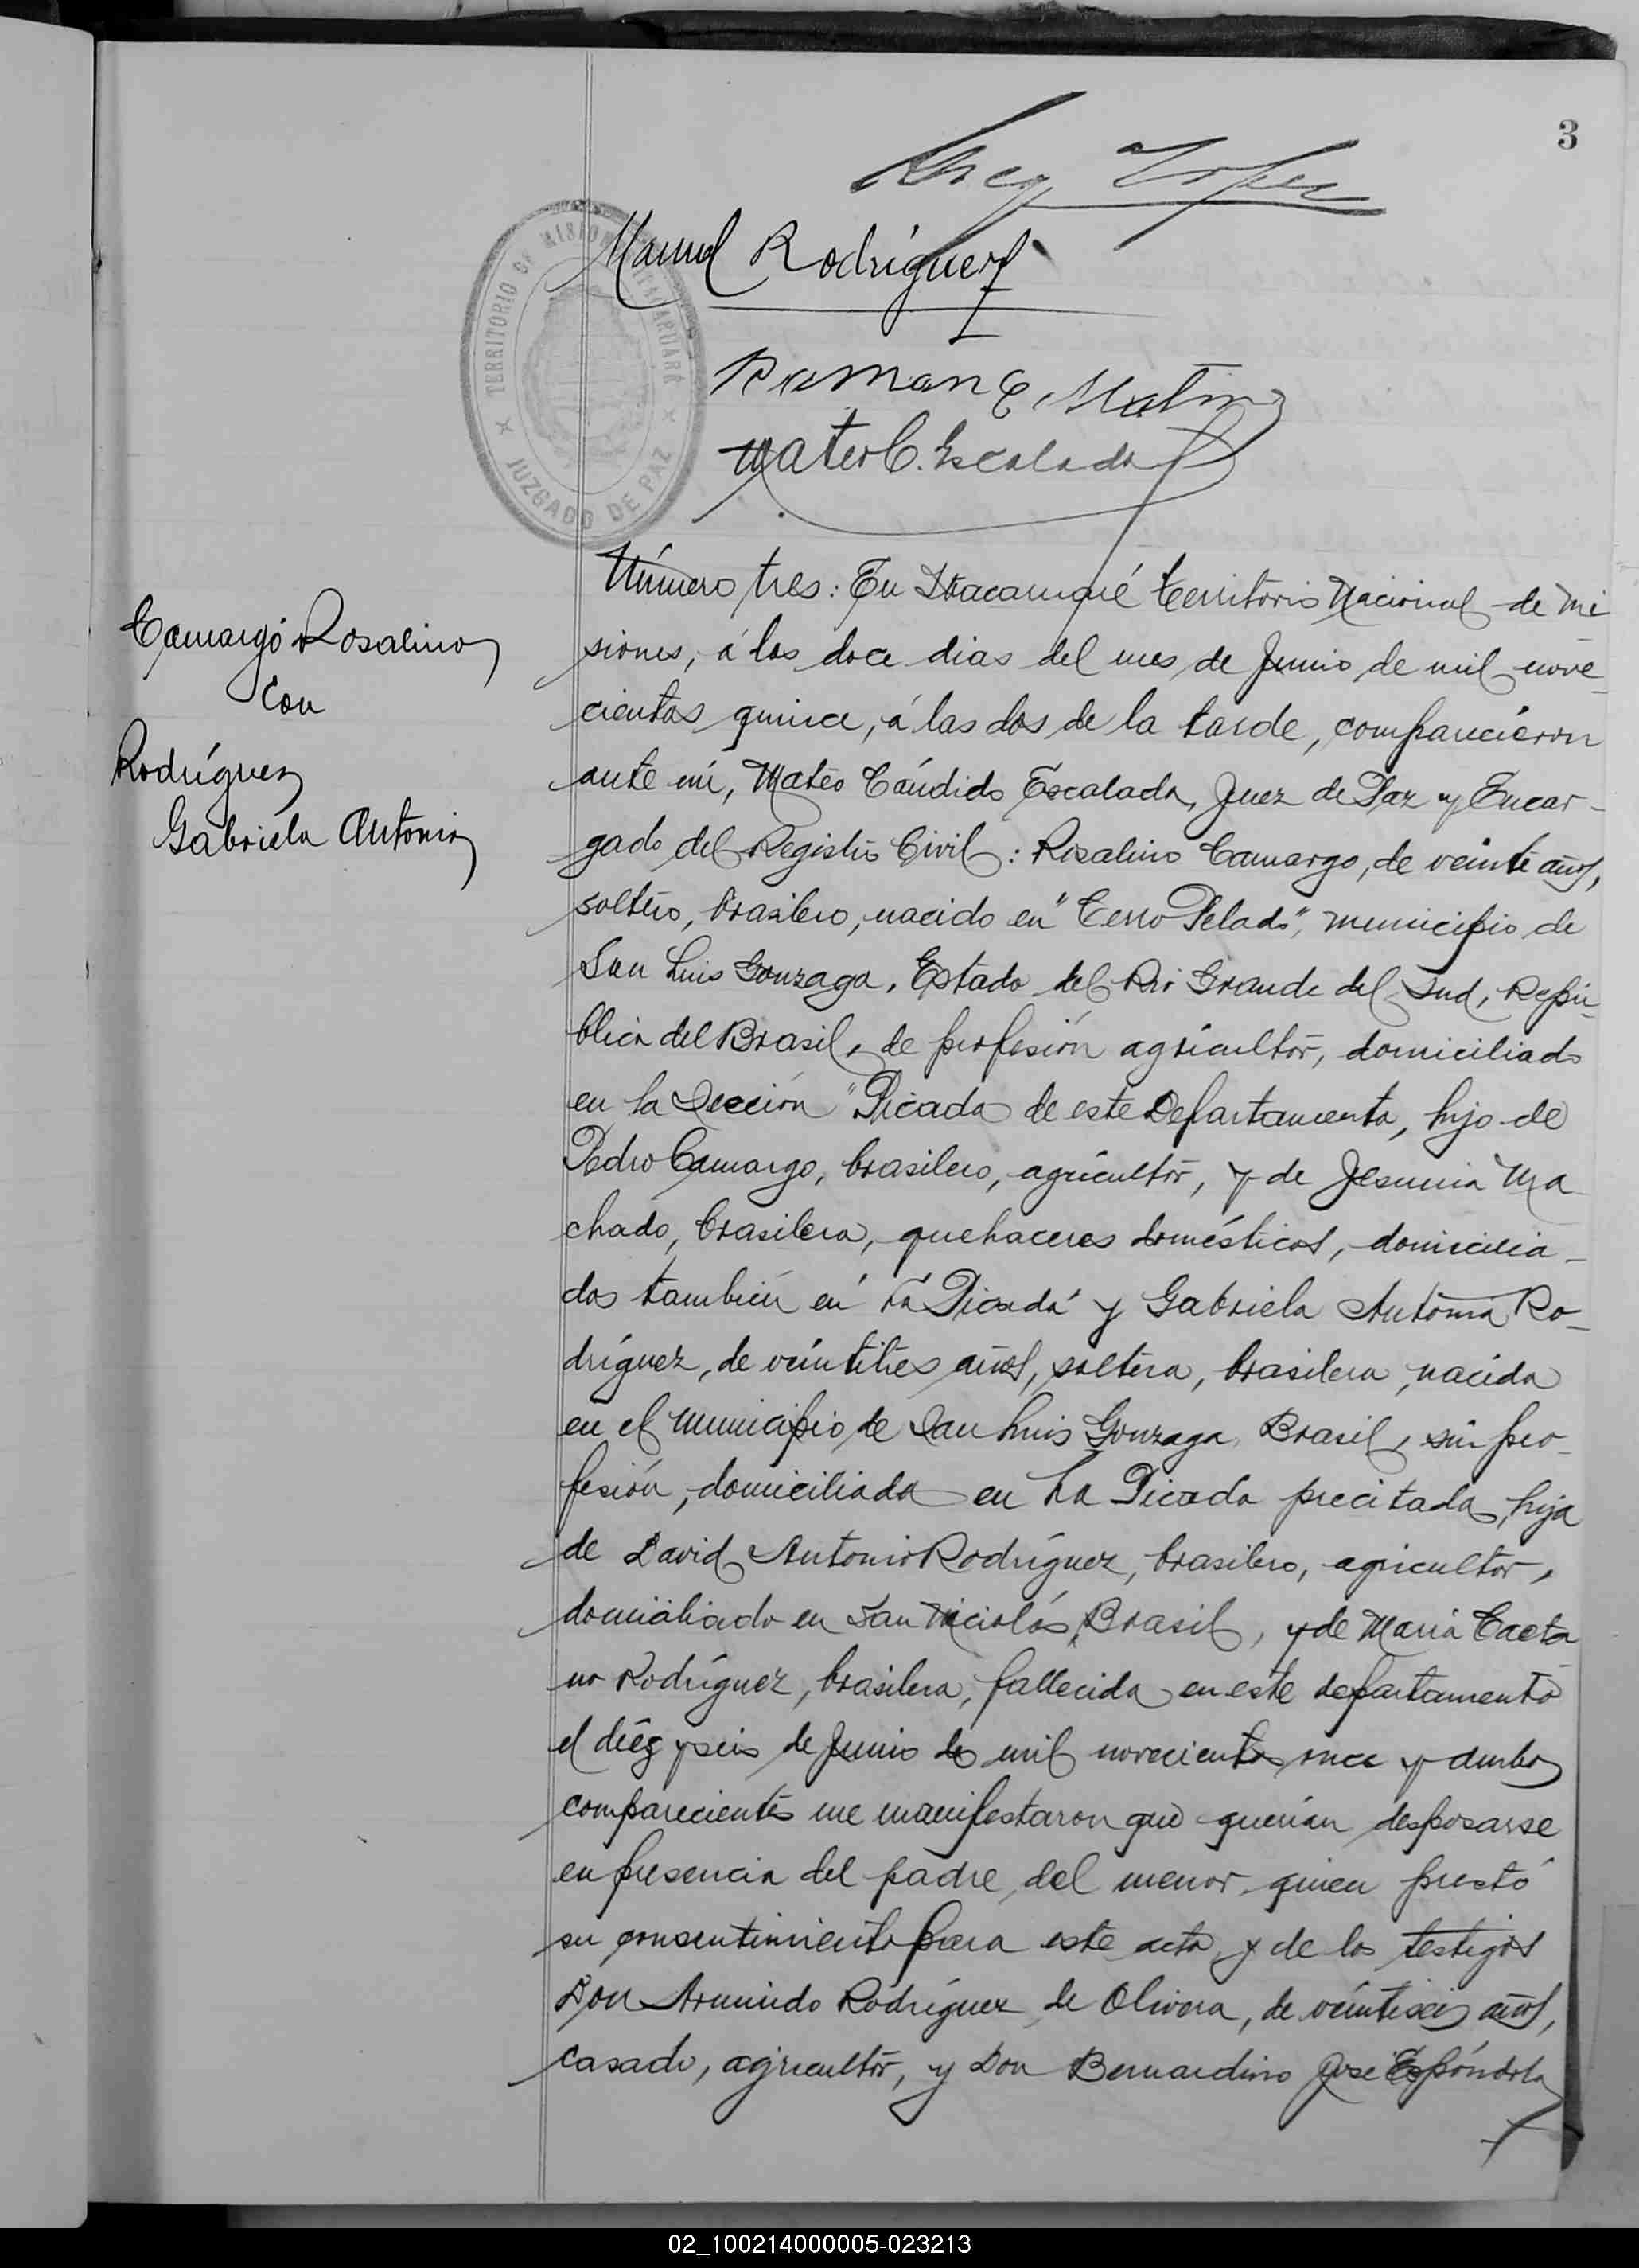 3
Lopez
Manuel Rodriguez
Roman E. Matin
Mateo C. Escalada
TERRITORIO DE MISIONES
JUZGADO DE PAZ
Camargo Rosalino
Con
Rodríguez
Gabriela Antonia
Número tres: En Itacaruaré Territorio Nacional de Mi
siones, á los doce dias del mes de Junio de mil nove_
cientos quince, á las dos de la tarde, comparecieron
ante mí, Mateo Cándido Escalada, Juez de Paz y Encar_
gado del Registro Civil: Rosalino Camargo, de veinte años,
soltero, brasilero, nacido en "Cerro Pelado", municipio de
San Luis Gonzaga, Estado del Rio Grande del Sud, Repú_
blica del Brasil, de profesión agricultor, domiciliado
en la Sección "Picada de este Departamento, hijo de
Pedro Camargo, brasilero, agricultor, y de Ma
chado, brasilera, quehaceres domésticos, domicilia_
dos también en "La Picada" y Gabriela Antonia Ro_
dríguez, de veintitres años, soltera, brasilera, nacida
en el municipio de San Luis Gonzaga, Brasil, sin pro_
fesión, domiciliada en La Picada precitada, hija
de David Antonio Rodríguez, brasilero, agricultor,
domiciliado en San Nicolás, Brasil, y de Maria Caeta
no Rodríguez, brasilera, fallecida en este departamento
el diéz y seis de Junio de mil novecientos once y ambos
comparecientes me manifestaron que querian desposarse
en presencia del padre del menor, quien prestó
su consentimiento para este acto, y de los testigos
Don Rodríguez de Olivera, de veintiseis años,
casado, agricultor, y Don Bernardino José Espóndola
02_100214000005-023213